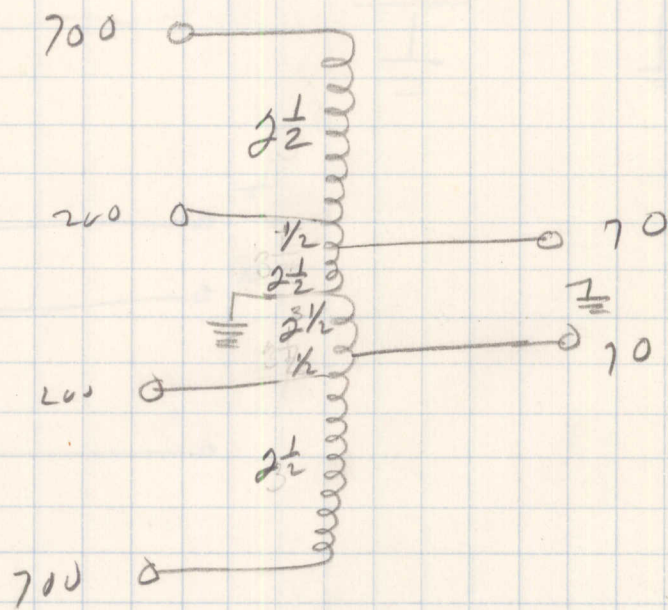 700
2 1/2
200
1/2
70
2 1/2
2 1/2
70
1/2
200
2 1/2
700